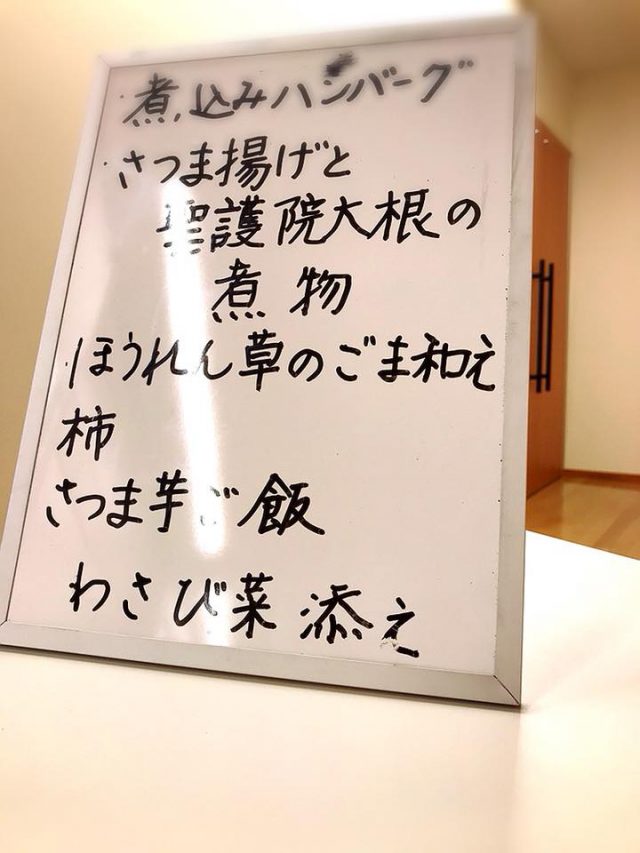 煮込みハンバーグ
さつま揚げと
聖護院大根の
煮物
ほうれん草のごま和え
柿
さつま芋ご飯
わさび菜添え